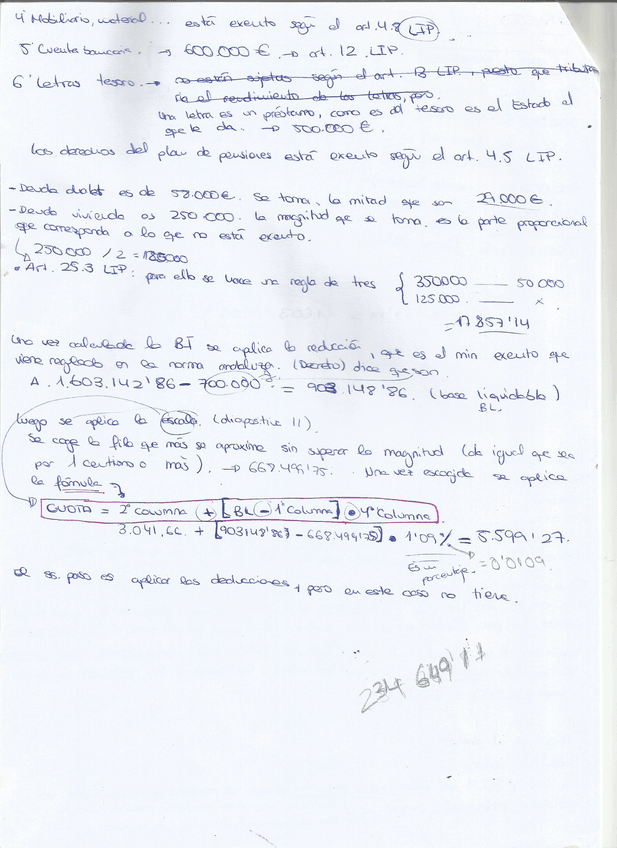 4º Mobiliario, material... está exento según el art. 4.8 LIP.
5º Cuenta bancaria. → 600.000 € → art. 12 LIP.
6º Letras tesoro. → no están sujetas según el art. 13 LIP, puesto que tributa
ría el rendimiento de las letras, pero
Una letra es un préstamo, como es del tesoro es el Estado el
que le da. → 500.000 €.
Los derechos del plan de pensiones está exento según el art. 4.5 LIP.
- Deuda es de 58.000 €. Se toma la mitad que son 29.000 €.
- Deuda vivienda es 250.000. La magnitud que se toma es la parte proporcional
que corresponda a lo que no está exento.
250.000 / 2 = 125000
• Art. 25.3 LIP: para ello se hace una regla de tres { 350000 — 50.000
125.000 — x
= 17.857'14
Una vez calculada la BI se aplica la reducción, que es el min exento que
viene reglado en la norma andaluza. (Decreto) dice que son
A. 1.603.142'86 - 700.000 = 903.148'86. (base liquidable)
BL.
Luego se aplica la escala. (diapositiva 11).
Se coge la fila que más se aproxime sin superar la magnitud (da igual que sea
por 1 céntimo o más). → 668.499,75. Una vez escogida se aplica
la fórmula
CUOTA = 2ª columna + [BL - 1ª Columna] • 4ª Columna
3.041,66. + [903148'86 - 668.499'75] • 1'09% = 5.599'27.
Es un
porcentaje. = 0'0109.
El ss. paso es aplicar las deducciones, pero en este caso no tiene.
234 649'11